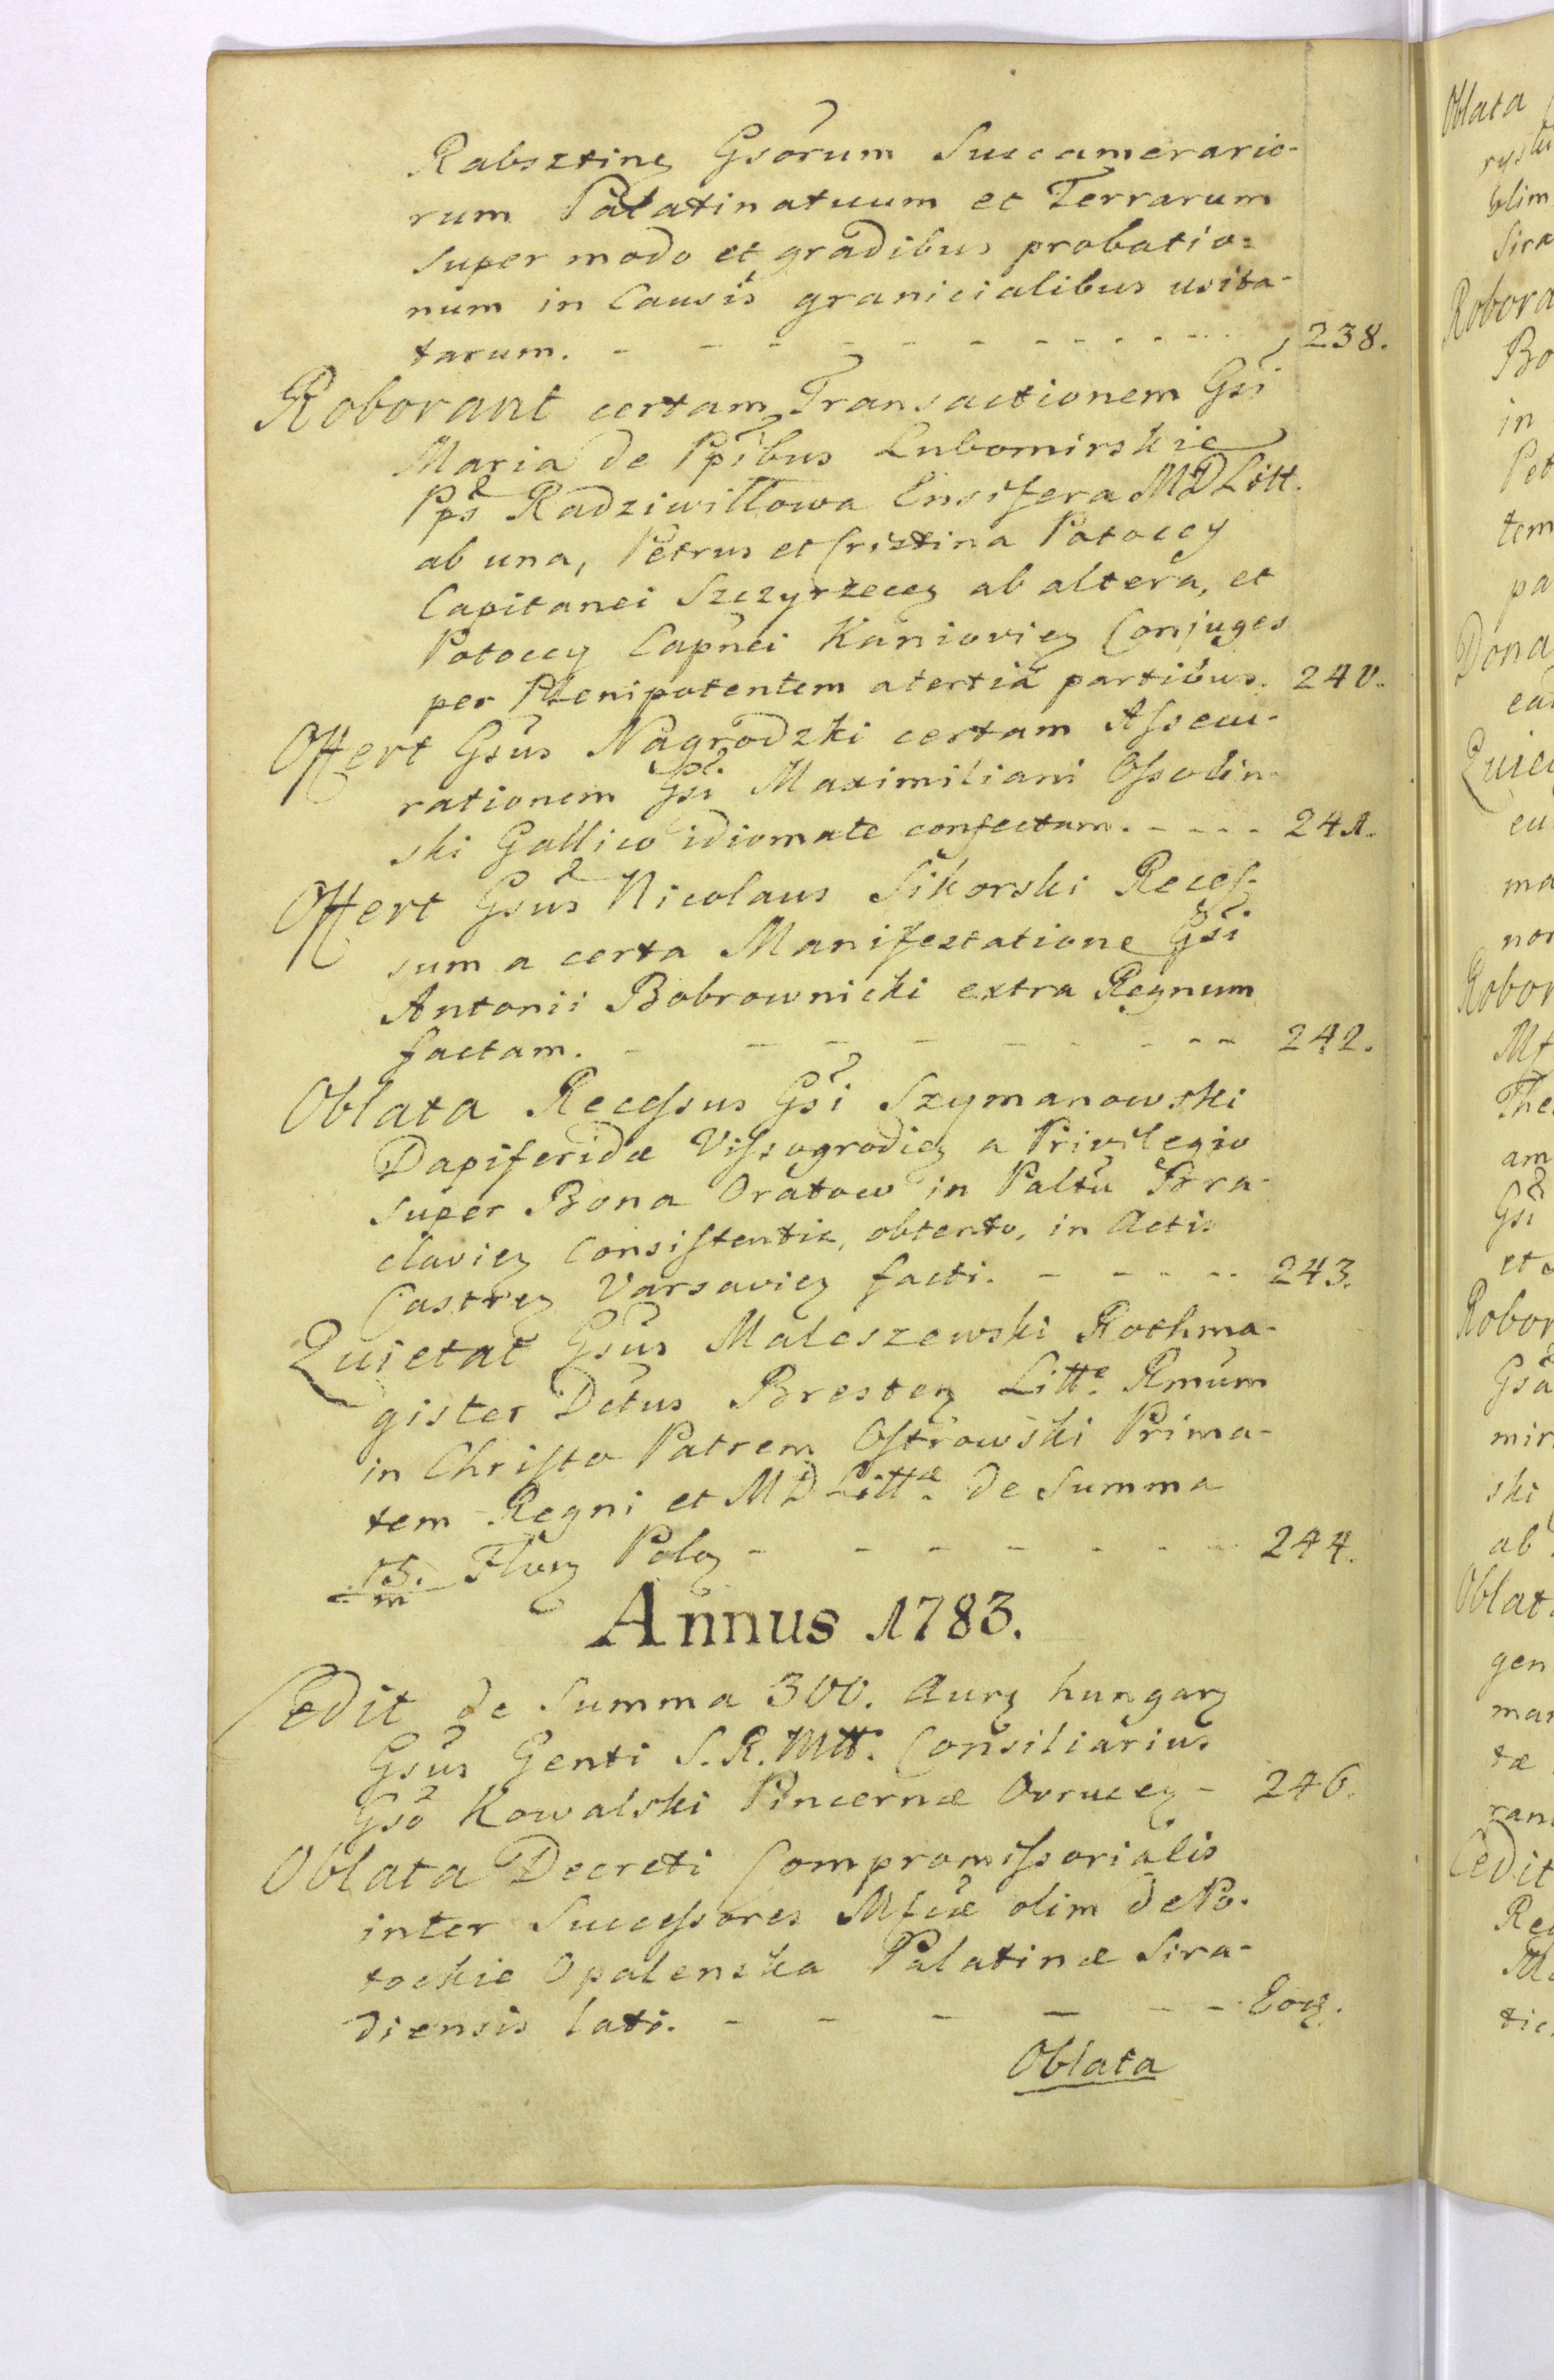 Rabsztinę Gsorum Succamerario-
rum Palatinatuum et Terrarum
super modo et gradibus probatio=
num in Causis granicialibus usita-
tarum. - - - - - - - - - - 238.
Roborant certam Transactionem Gsi
Maria de Ppibus Lubomirskie
Pps Radziwiłłowa Ensifera MDLitt.
ab una, Petrus et Cristina Potoccy
Capitanei Szczyrzecen ab altera, et
Potoccy Capnei Kanioviens Conjuges
per Plenipotentem a tertia partibus. 240.
Offert Gsus Nagrodzki certam Assecu-
rationem Gsi Maximiliani Ossolin-
ski Gallico idiomate confectam. - - - - 241.
Offert Gsus Nicolaus Sikorski Reces-
sum a certa Manifestatione Gsi
Antonii Bobrownicki extra Regnum
factam. - - - - - - - - - 242.
Oblata Recessus Gsi Szymanowski
Dapiferidæ Vissogrodien a Privilegio
super Bona Oratow in Paltu Bra-
clavien Consistentia, obtento, in Actis
Castren Varsavien facti. - - - - - 243.
Quietat Gsus Maleszewski Rothma-
gister Dctus Bresten Litt.e Rmum
in Christo Patrem Ostrowski Prima-
tem Regni et MDLitt.æ de Summa
15./m Flor Pol - - - - - - - 244.
Annus 1783.
Cedit de Summa 300. Aur hungar
Gsus Genti S.R.Mtt. Consiliarius
Gso Kowalski Pincernæ Ovrucen - 246.
Oblata Decreti Compromissorialis
inter Successores Mfcæ olim de Po-
tockie Opalenska Palatinæ Sira-
diensis lati. - - - - - - Eod.
Oblata
Oblata
Sira
Robora
Bo
in
Pet
tem
pa
Dona
ead
Quiet
eu
ma
nor
Robor
Mf
The
am
Gsi
et
Robor
Gsa
mir
ski
ab
Oblat
gen
mar
tæ
ran
Cedit
Rec
tic